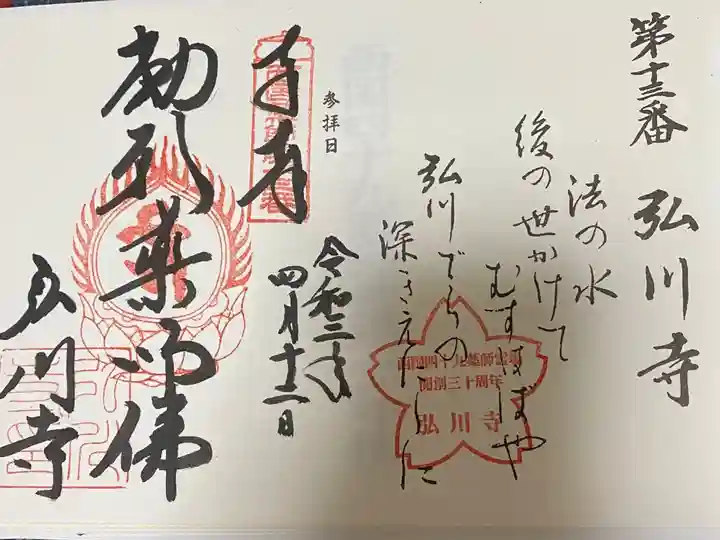 第十三番 弘川寺
法の水
後の世かけて
むすばばや
弘川でらの
深きえにしに
西国四十九薬師霊場
開創三十周年
弘川寺
参拝日
奉拝
令和三年
四月十二日
薬師佛
弘川寺